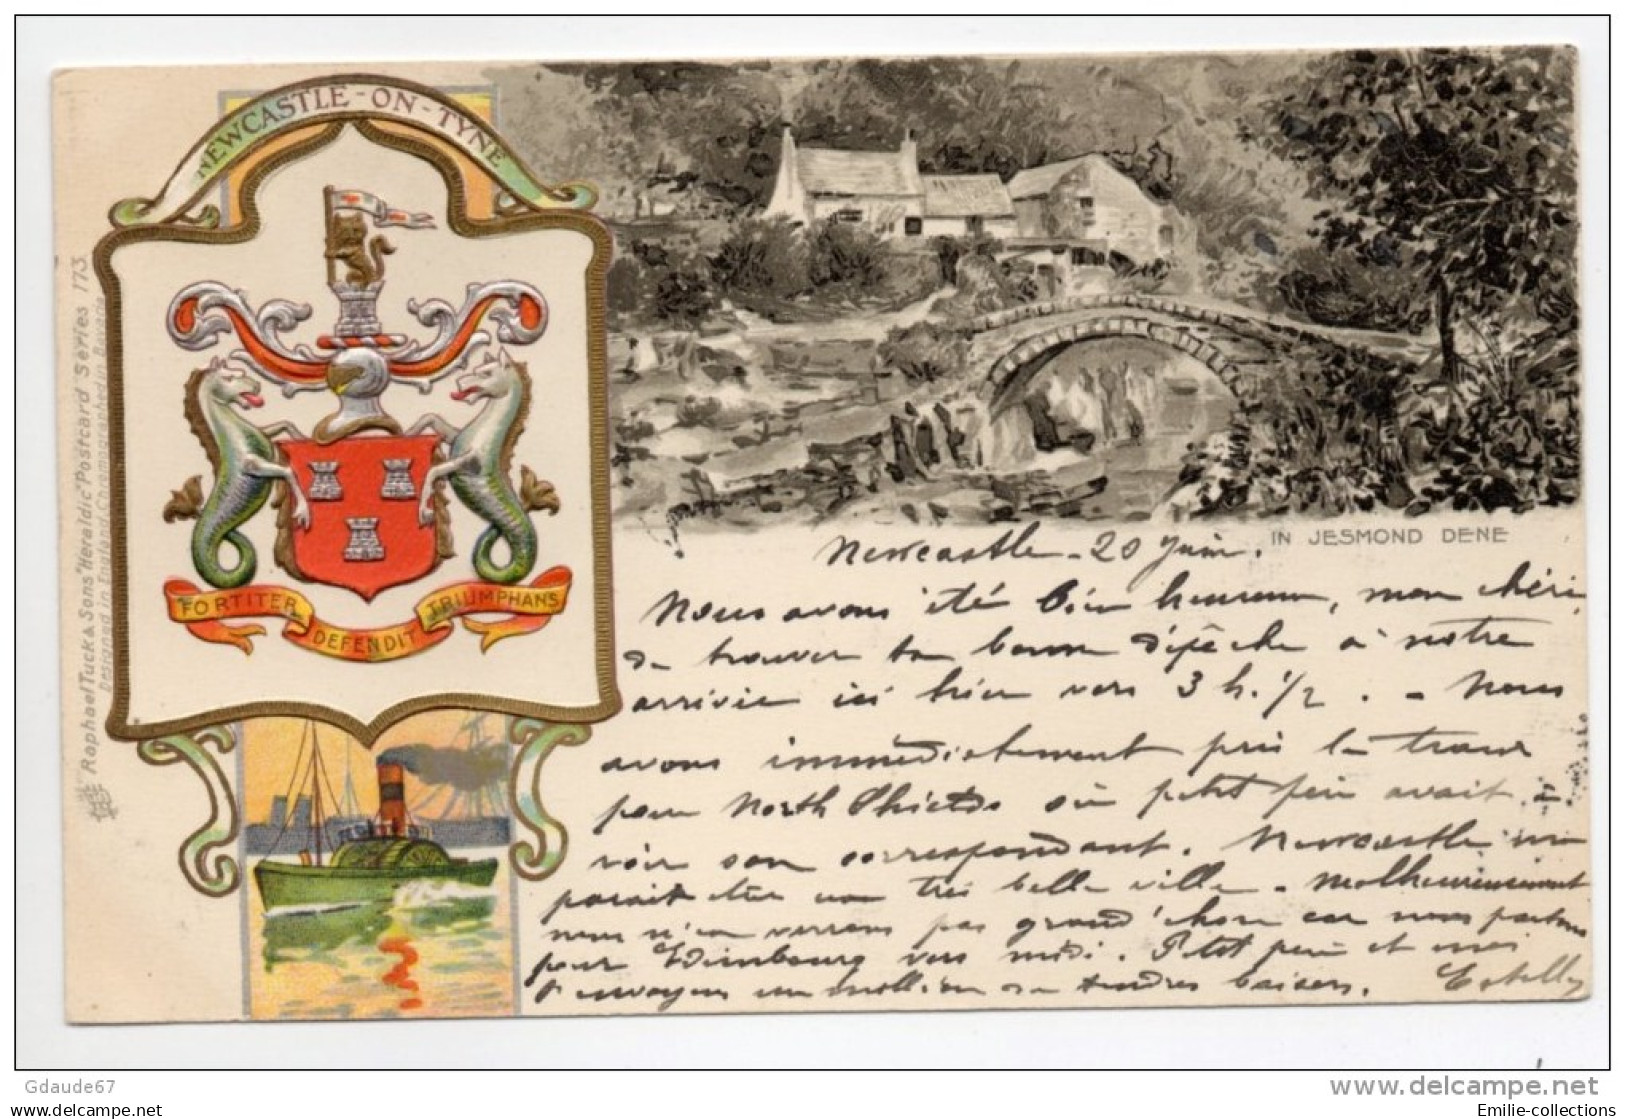 NEWCASTLE-ON-TYNE
FORTITER DEFENDIT TRIUMPHANS
Raphael Tuck & Sons' "Heraldic" Postcard Series 173.
Designed in England, Chromographed in Bavaria
IN JESMOND DENE
Newcastle - 20 Juin.
Nous avons été bien heureuses, mon chéri,
de trouver ta bonne dépêche à notre
arrivée ici hier vers 3 h. 1/2. - Nous
avons immédiatement pris le train
pour North Shields où petit père avait à
voir son correspondant. Newcastle me
parait être une très belle ville - Malheureusement
nous n'en verrons pas grand'chose car nous partons
pour Edimbourg vers midi. P'tit père et moi
t'envoyons un million de tendres baisers. Estelle
Gdaude67
www.delcampe.net
Emilie-collections